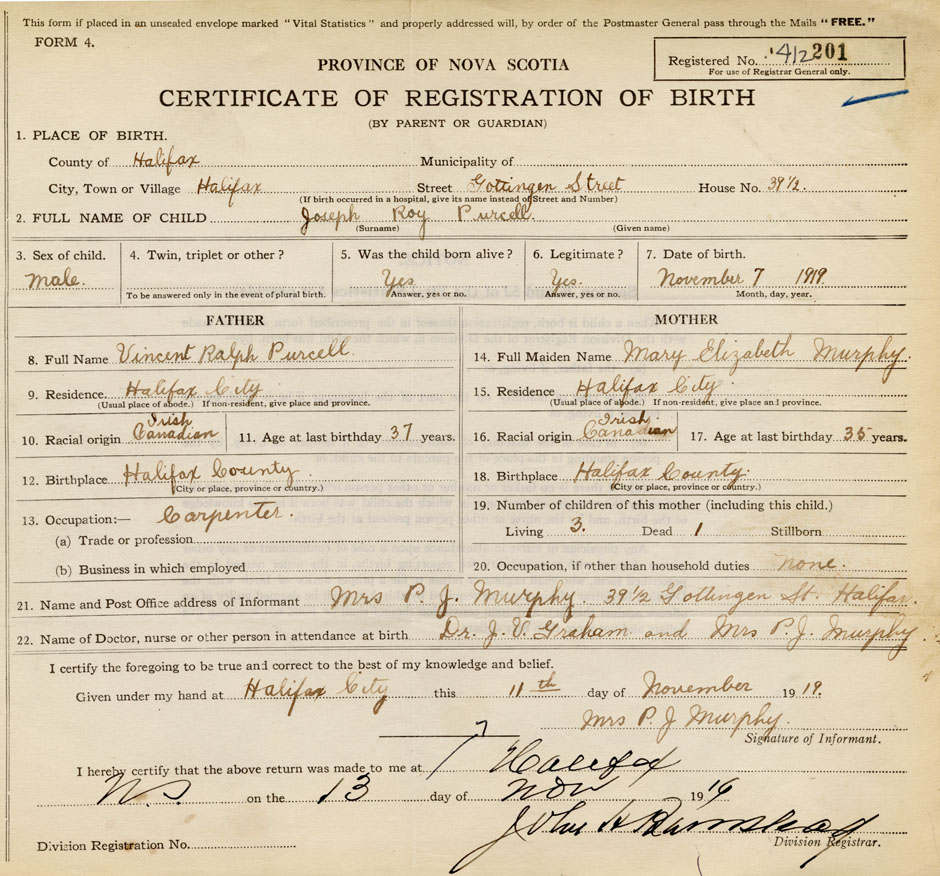 This form if placed in an unsealed envelope marked "Vital Statistics" and properly addressed will, by order of the Postmaster General pass through the Mails "FREE."
FORM 4.
Registered No. 412 201
For use of Registrar General only.
PROVINCE OF NOVA SCOTIA
CERTIFICATE OF REGISTRATION OF BIRTH
(BY PARENT OR GUARDIAN)
1. PLACE OF BIRTH.
County of Halifax Municipality of
City, Town or Village Halifax Street Gottingen Street House No. 39½.
(If birth occurred in a hospital, give its name instead of Street and Number)
2. FULL NAME OF CHILD Joseph Roy Purcell.
(Surname) (Given name)
3. Sex of child. 4. Twin, triplet or other? 5. Was the child born alive? 6. Legitimate? 7. Date of birth.
Male. Yes. Yes. November 7 1919.
To be answered only in the event of plural birth. Answer, yes or no. Answer, yes or no. Month, day, year.
FATHER
8. Full Name Vincent Ralph Purcell.
9. Residence. Halifax City
(Usual place of abode.) If non-resident, give place and province.
10. Racial origin Irish Canadian 11. Age at last birthday 37 years.
12. Birthplace Halifax County.
(City or place, province or country.)
13. Occupation:— Carpenter.
(a) Trade or profession
(b) Business in which employed
MOTHER
14. Full Maiden Name Mary Elizabeth Murphy.
15. Residence Halifax City
(Usual place of abode.) If non-resident, give place and province.
16. Racial origin Irish Canadian 17. Age at last birthday 35 years.
18. Birthplace Halifax County.
(City or place, province or country.)
19. Number of children of this mother (including this child.)
Living 3. Dead 1 Stillborn
20. Occupation, if other than household duties None.
21. Name and Post Office address of Informant Mrs P. J. Murphy. 39½ Gottingen St. Halifax.
22. Name of Doctor, nurse or other person in attendance at birth Dr. J. V. Graham and Mrs P. J. Murphy.
I certify the foregoing to be true and correct to the best of my knowledge and belief.
Given under my hand at Halifax City this 11th day of November 1919.
Mrs P. J Murphy.
Signature of Informant.
I hereby certify that the above return was made to me at Halifax
N.S on the 13 day of Nov 1919
John A
Division Registrar.
Division Registration No.